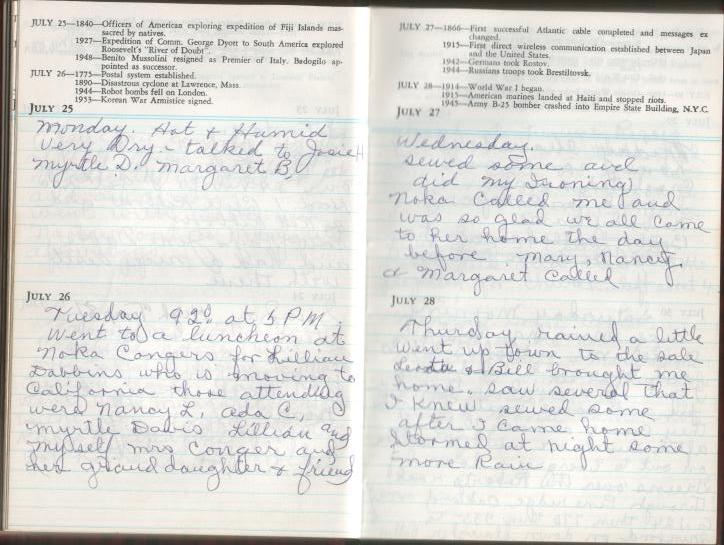 JULY 25—1840—Officers of American exploring expedition of Fiji Islands mas-
sacred by natives.
1927—Expedition of Comm. George Dyott to South America explored
Roosevelt's "River of Doubt".
1948—Benito Mussolini resigned as Premier of Italy. Badogilo ap-
pointed as successor.
JULY 26—1775—Postal system established.
1890—Disastrous cyclone at Lawrence, Mass.
1944—Robot bombs fell on London.
1953—Korean War Armistice signed.
JULY 25
Monday. Hot & Humid
Very Dry - talked to Josie H
Myrtle D. Margaret B,
JULY 26
Tuesday 92° at 5 PM.
Went to a luncheon at
Noka Congers for Lillian
Dabbins who is moving to
California those attending
were Nancy L, Ada C,
Myrtle Davis Lillian and
myself Mrs Conger and
her granddaughter & friend
JULY 27—1866—First successful Atlantic cable completed and messages ex
changed.
1915—First direct wireless communication established between Japan
and the United States.
1942—Germans took Rostov.
1944—Russians troops took Brestiltovsk.
JULY 28—1914—World War I began.
1915—American marines landed at Haiti and stopped riots.
1945—Army B-25 bomber crashed into Empire State Building, N.Y.C.
JULY 27
Wednesday.
sewed some and
did my Ironing
Noka Called me and
was so glad we all came
to her home the day
before. Mary, Nancy,
& Margaret Called
JULY 28
Thursday, rained a little
went up town to the sale
& Bill brought me
home. saw several that
I knew sewed some
after I came home
stormed at night some
more Rain